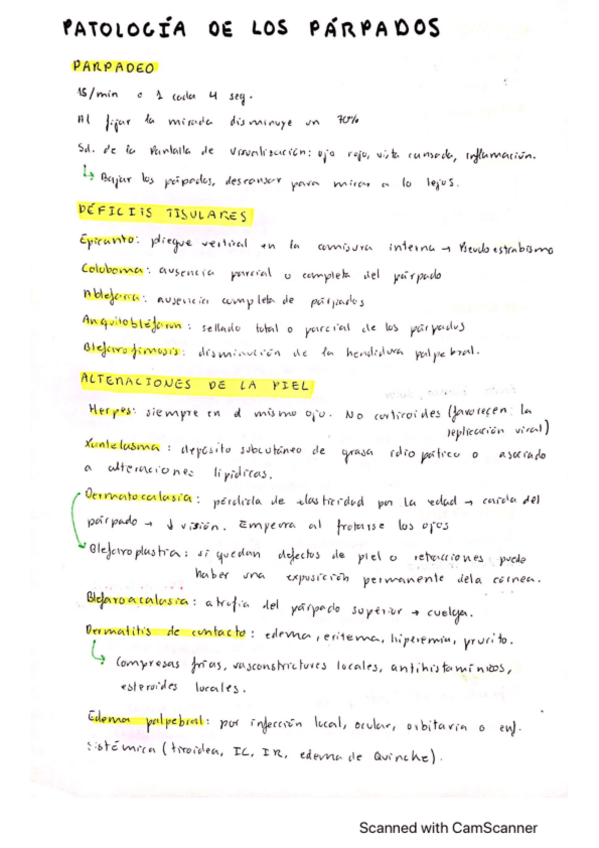 PATOLOGÍA DE LOS PÁRPADOS
PARPADEO
15/min o 1 cada 4 seg.
Al fijar la mirada disminuye un 70%
Sd. de la Pantalla de visualización: ojo rojo, vista cansada, inflamación.
↳ Bajar los párpados, descansar para mirar a lo lejos.
DÉFICITS TISULARES
Epicanto: pliegue vertical en la comisura interna → Pseudoestrabismo
Coloboma: ausencia parcial o completa del párpado
Ablefaria: ausencia completa de párpados
Anquilobléfaron: sellado total o parcial de los párpados
Blefarofimosis: disminución de la hendidura palpebral.
ALTERACIONES DE LA PIEL
Herpes: siempre en el mismo ojo. No corticoides (favorecen la
replicación viral)
Xantelasma: depósito subcutáneo de grasa idiopático o asociado
a alteraciones lipídicas.
Dermatocalasia: pérdida de elasticidad por la edad → caída del
párpado → ↓ visión. Empeora al frotarse los ojos
Blefaroplastia: si quedan defectos de piel o retracciones puede
haber una exposición permanente de la córnea.
Blefaroacalasia: atrofia del párpado superior → cuelga.
Dermatitis de contacto: edema, eritema, hiperemia, prurito.
↳ Compresas frías, vasoconstrictores locales, antihistamínicos,
esteroides locales.
Edema palpebral: por infección local, ocular, orbitaria o enf.
sistémica (tiroidea, IC, IR, edema de Quincke).
Scanned with CamScanner